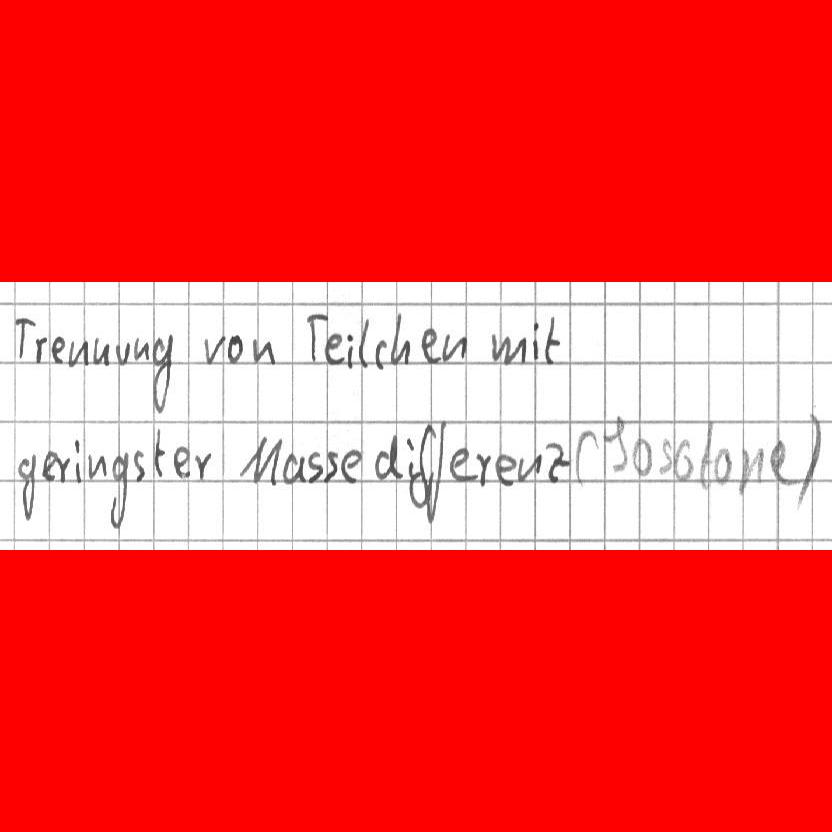 Trennung von Teilchen mit
geringster Massedifferenz (Isosotope)